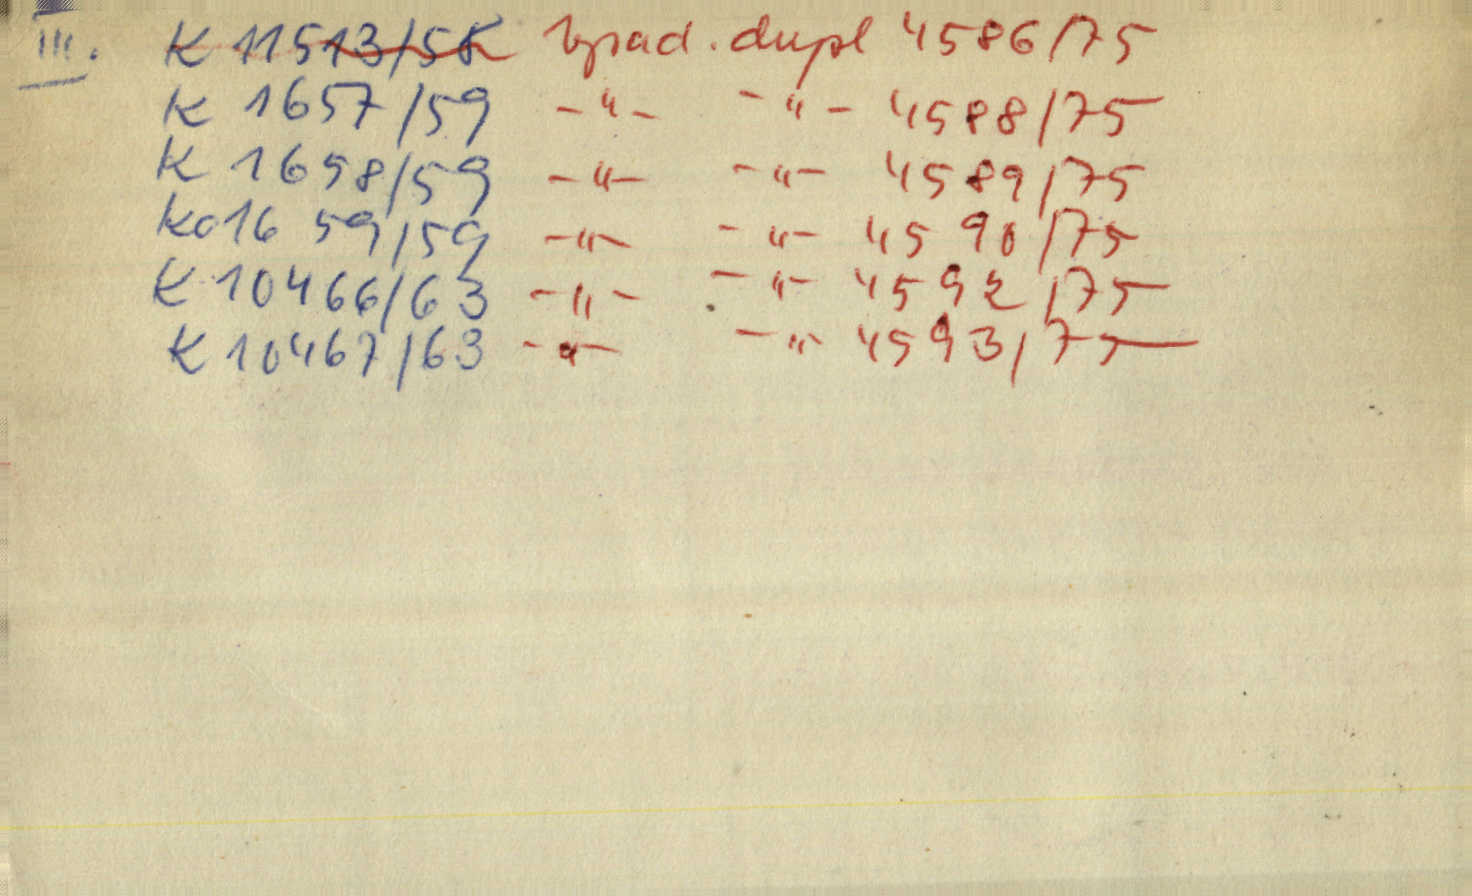 III. K 11513/58 bzrad. dupl 4586/75
K 1657/59 -"- -"- 4588/75
K 1658/59 -"- -"- 4589/75
Ko 1659/59 -"- -"- 4590/75
K 10466/63 -"- -"- 4592/75
K 10467/63 -"- -"- 4593/75